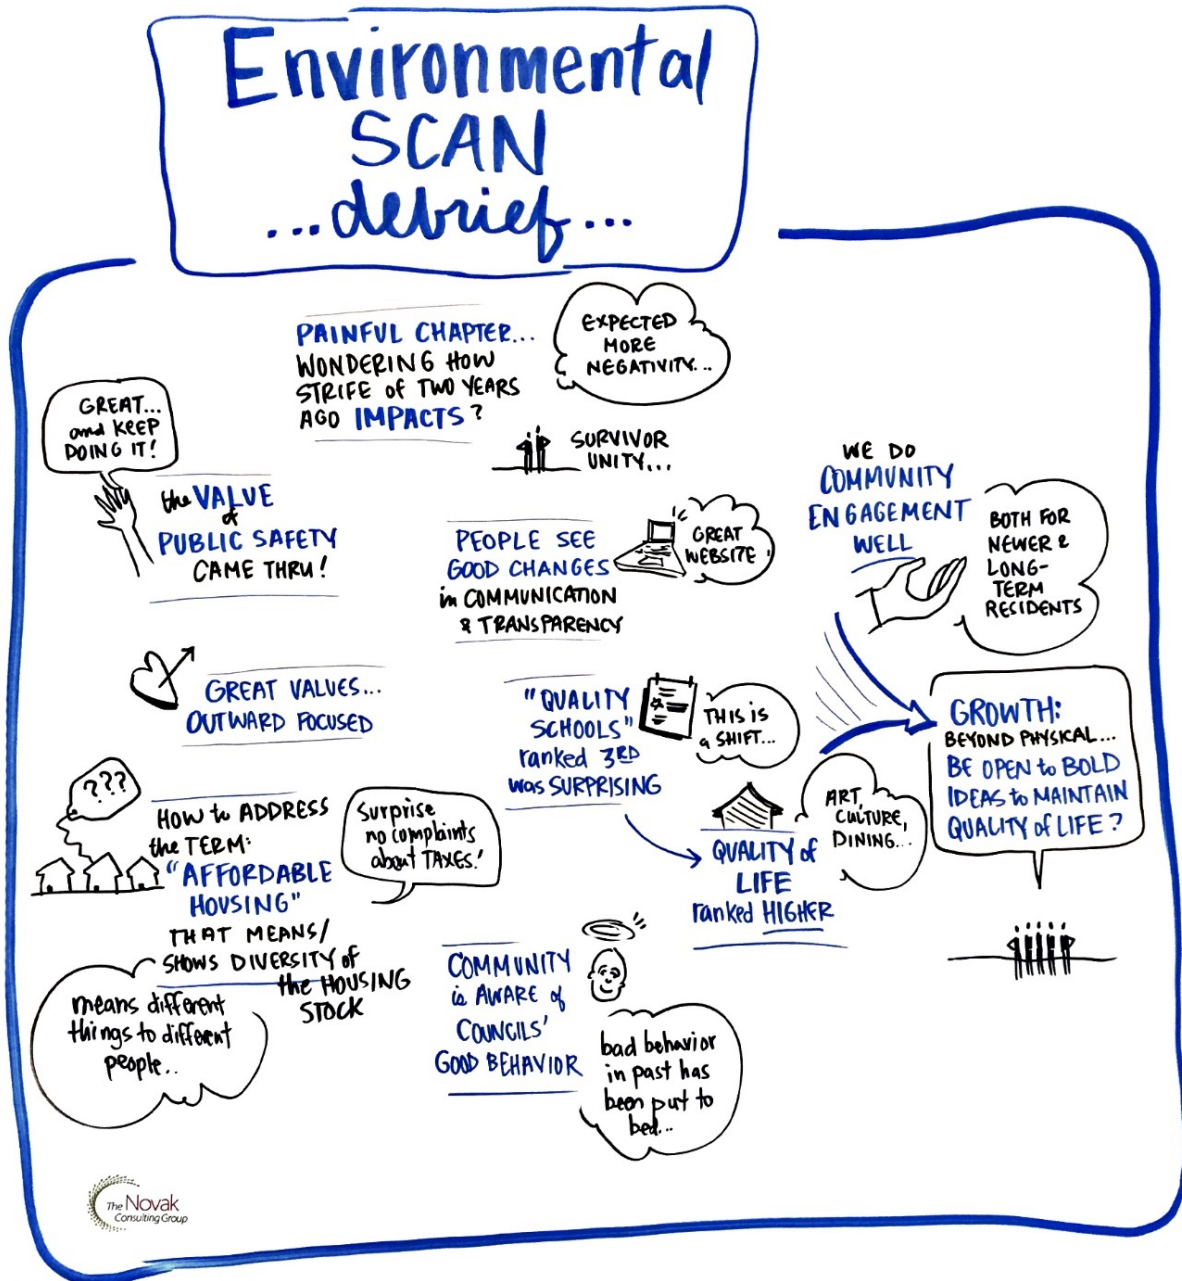 Environmental
SCAN
...debrief...
PAINFUL CHAPTER...
WONDERING HOW
STRIFE of TWO YEARS
AGO IMPACTS?
EXPECTED
MORE
NEGATIVITY...
SURVIVOR
UNITY...
GREAT...
and KEEP
DOING IT!
the VALUE
of
PUBLIC SAFETY
CAME THRU!
PEOPLE SEE
GOOD CHANGES
in COMMUNICATION
& TRANSPARENCY
GREAT
WEBSITE
WE DO
COMMUNITY
ENGAGEMENT
WELL
BOTH FOR
NEWER &
LONG-
TERM
RESIDENTS
GREAT VALUES...
OUTWARD FOCUSED
"QUALITY
SCHOOLS"
ranked 3RD
was SURPRISING
THIS is
a SHIFT...
GROWTH:
BEYOND PHYSICAL...
BE OPEN to BOLD
IDEAS to MAINTAIN
QUALITY of LIFE?
ART,
CULTURE,
DINING...
QUALITY of
LIFE
ranked HIGHER
???
HOW to ADDRESS
the TERM:
"AFFORDABLE
HOUSING"
THAT MEANS/
SHOWS DIVERSITY of
the HOUSING
STOCK
Surprise
no complaints
about TAXES!
means different
things to different
people..
COMMUNITY
is AWARE of
COUNCILS'
GOOD BEHAVIOR
bad behavior
in past has
been put to
bed...
The Novak
Consulting Group